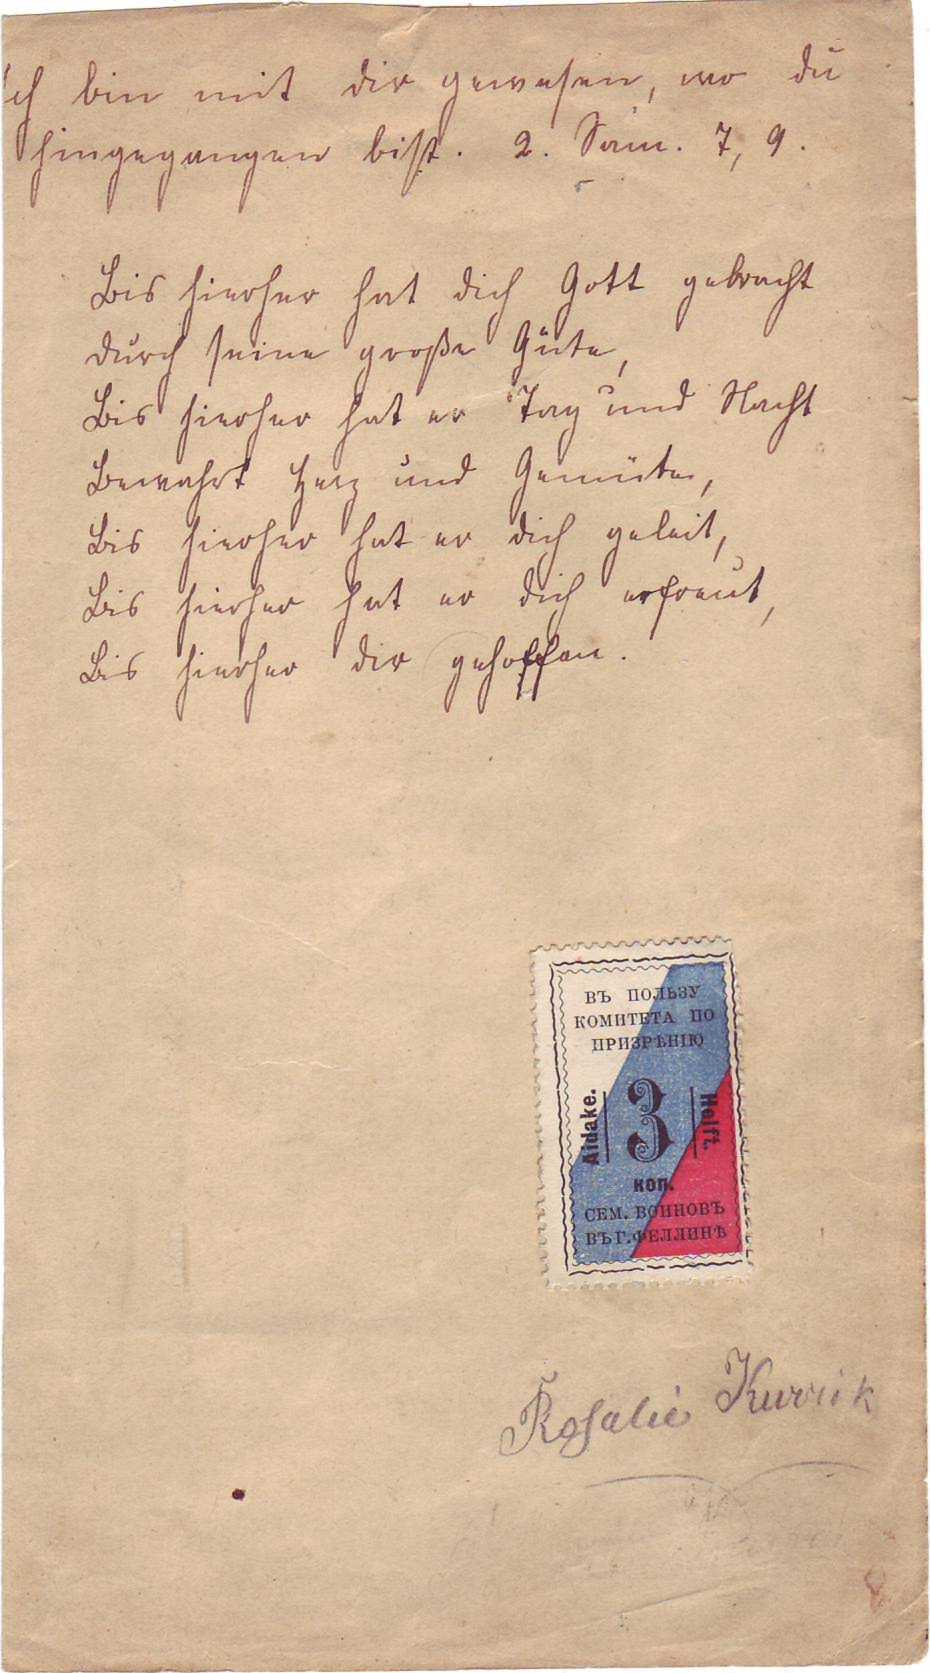 Ich bin mit dir gewesen, wo du
hingegangen bist. 2. Sam. 7, 9.
Bis hierher hat dich Gott gebracht
durch seine große Güte,
Bis hierher hat er Tag und Nacht
Bewahrt Herz und Gemüte,
Bis hierher hat er dich geleit,
Bis hierher hat er dich erfreut,
Bis hierher dir geholfen.
ВЪ ПОЛЬЗУ
КОМИТЕТА ПО
ПРИЗРѢНІЮ
Aidake.
3
Helft.
коп.
СЕМ. ВОИНОВЪ
ВЪ Г. ФЕЛЛИНѢ
Rosalie Kurrik
8